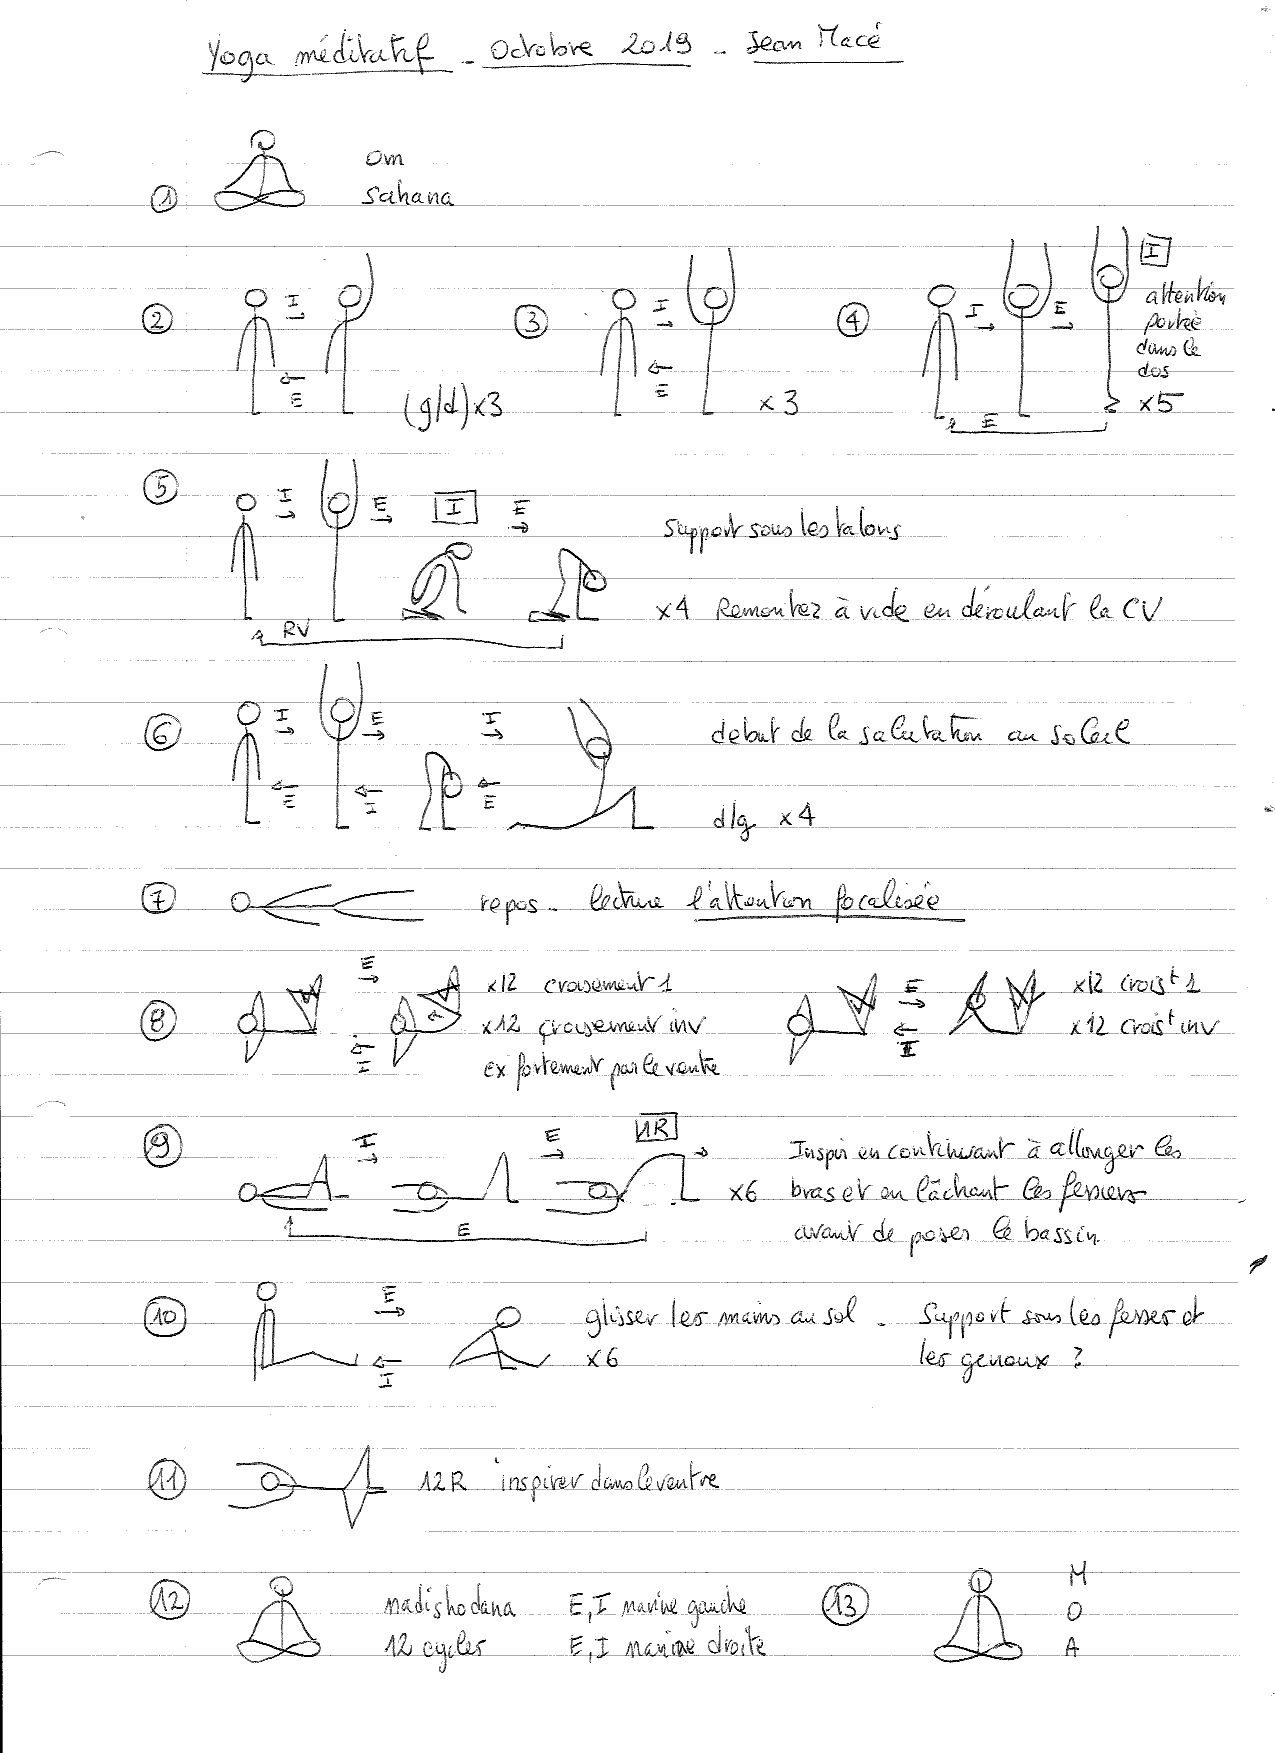 Yoga méditatif - Octobre 2019 - Jean Macé
① Om
Sahana
② I
E
(g/d) x3
③ I
E
x 3
④ I E I
attention
portée
dans le
dos
E x5
⑤ I E I E
Support sous les talons
x4 Remontez à vide en déroulant la CV
RV
⑥ I E I
debut de la salutation au soleil
E I E
d/g x4
⑦ repos - lecture l'attention focalisée
⑧ E
I
x12 croisement 1
x12 croisement inv
ex fortement par le ventre
E
I
x12 croist 1
x12 croist inv
⑨ I E 1R
Inspir en continuant à allonger les
x6 bras et en lâchant les fessiers
E avant de poser le bassin
⑩ E
I
glisser les mains au sol -
x6
Support sous les fesses et
les genoux ?
⑪ 12R inspirer dans le ventre
⑫ nadishodana E, I narine gauche
12 cycles E, I narine droite
⑬ M
O
A